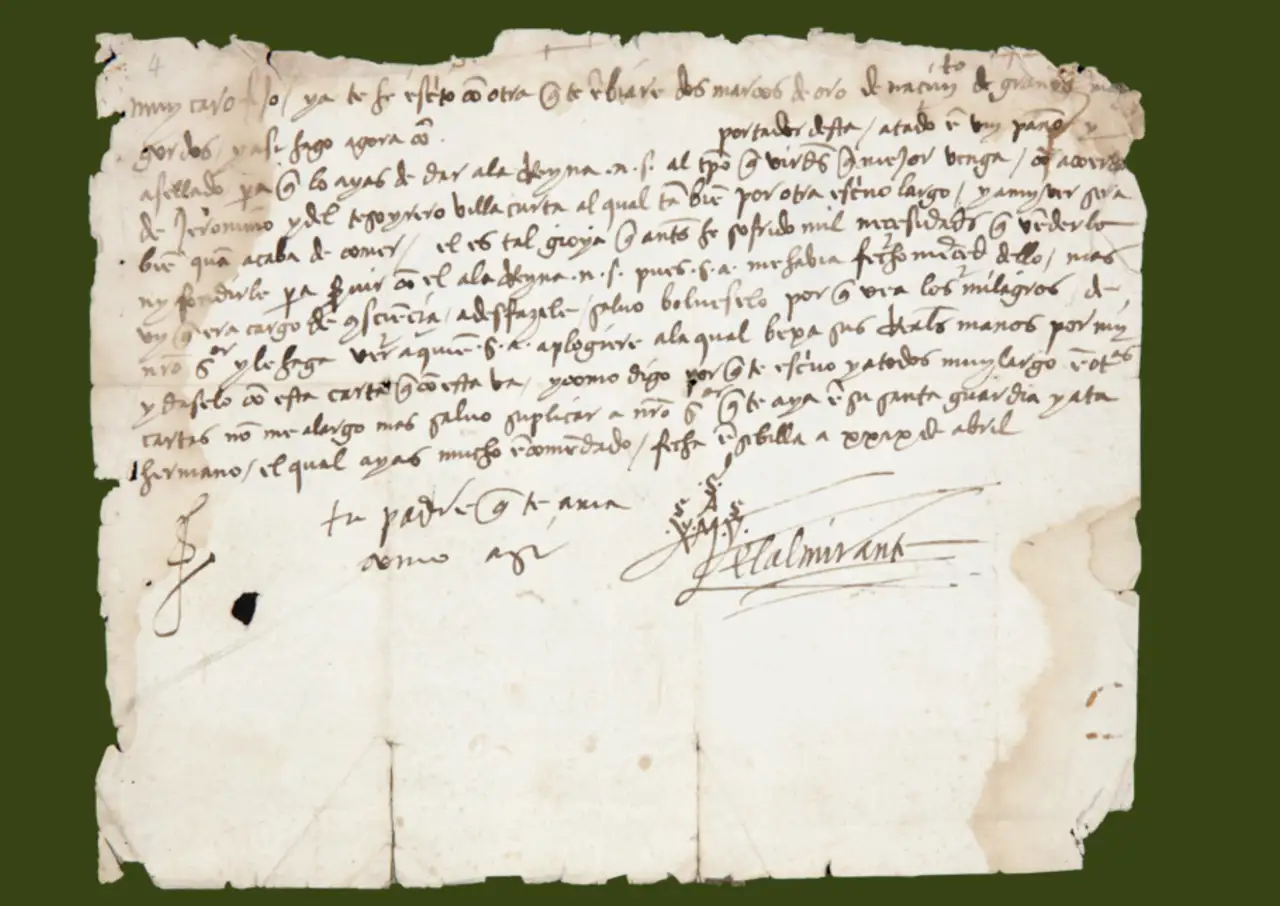 4
muy caro fijo / ya te he escrito cō otra q̄ te ēbiare dos marcos de oro de naciмịto de granos muy
gordos / y asi fago agora cō portador desta / atado ē vn paño y
asellado pa q̄ lo ayas de dar a la Reyna .n. s. al tpō q̄ vierdes q̄ mejor venga / cō acuerdo
de Jeronimo y del tesoyrero villacurta al qual tābiē por otra escrivo largo / y a my ver sera
biē quā acaba de comer / el es tal gioya q̄ ants he sofrido mil necesidads q̄ vēderlo
ny fondirle pa seruir cō el a la Reyna .n. s. pues .s. a. me habia fecho merced dello / mas
vy q̄ era cargo de conscieçia / a desfazele / salvo bolueselo por q̄ vea los milagros de
nr̄o sor y le haga ver a quiē .s. a. aplogiere a la qual bexa sus Reals manos por my
y daselo cō esta carta q̄ cō esta va / y como digo por q̄ te escrivo y a todos muy largo ē otras
cartas nō me alargo mas salvo suplicar a nr̄o sor q̄ te aya ē su santa guardia y a ta
hermano / el qual ayas mucho ēcomēdado / fecha ē sibilla a xxix de abril
tu padre q̄ te ama
como asi
.S.
.S. A .S.
X M Y
el almirante